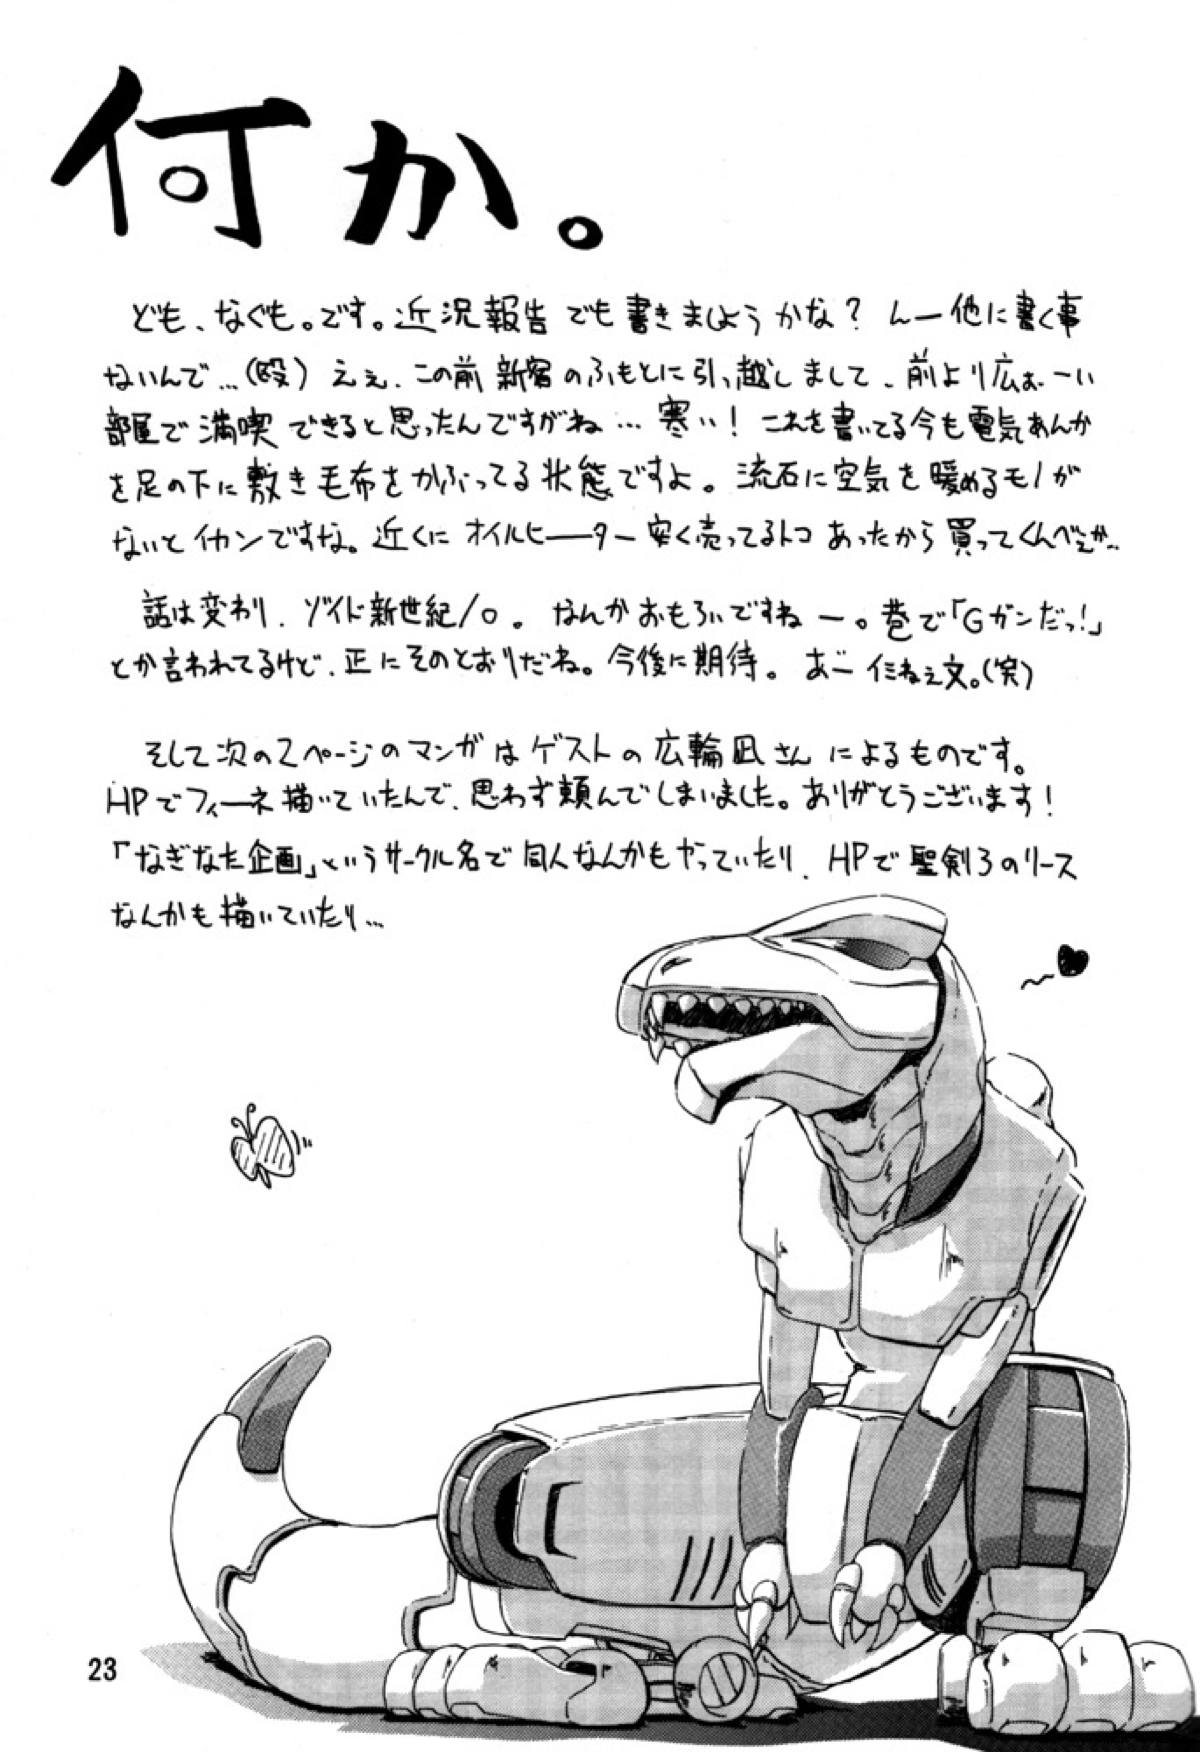 何か。
ども、なぐも。です。近況報告でも書きましようかな？ んー他に書く事
ないんで…（殴）ええ、この前新宿のふもとに引っ越しまして、前より広ぉーい
部屋で満喫できると思ったんですがね…寒い！これを書いてる今も電気あんか
を足の下に敷き毛布をかぶってる状態ですよ。流石に空気を暖めるモノが
ないとイカンですな。近くにオイルヒーター安く売ってるトコあったから買ってくんべぇか…
話は変わり、ゾイド新世紀/0。なんかおもろいですねー。巷で「Gガンだっ!」
とか言われてるけど、正にそのとおりだね。今後に期待。あー仁ねぇ文。（笑）
そして次の2ページのマンガはゲストの広輪凪さんによるものです。
HPでフィーネ描いていたんで、思わず頼んでしまいました。ありがとうございます！
「なぎなた企画」というサークル名で同人なんかもやっていたり、HPで聖剣3のリース
なんかも描いていたり…
23